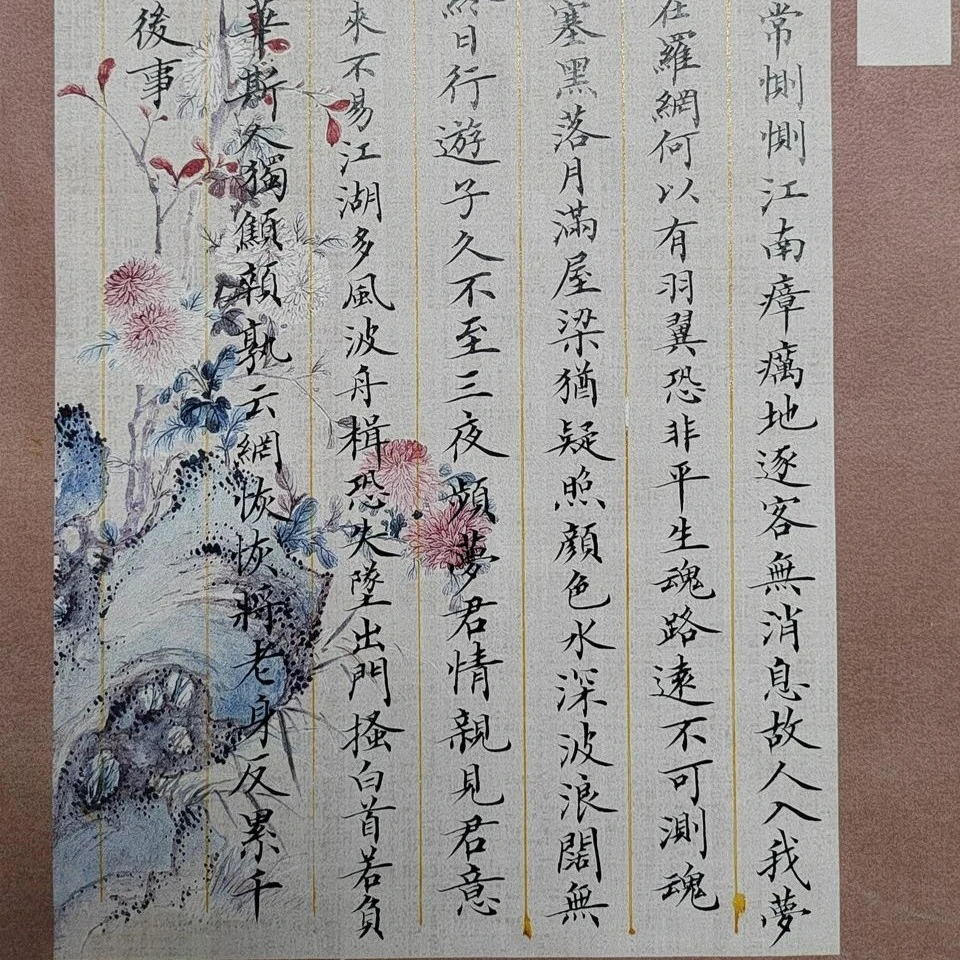 常惻惻江南瘴癘地逐客無消息故人入我夢
在羅網何以有羽翼恐非平生魂路遠不可測魂
塞黑落月滿屋梁猶疑照顏色水深波浪闊無
終日行遊子久不至三夜頻夢君情親見君意
來不易江湖多風波舟楫恐失墜出門搔白首若負
華斯人獨顦顇孰云網恢恢將老身反累千
後事